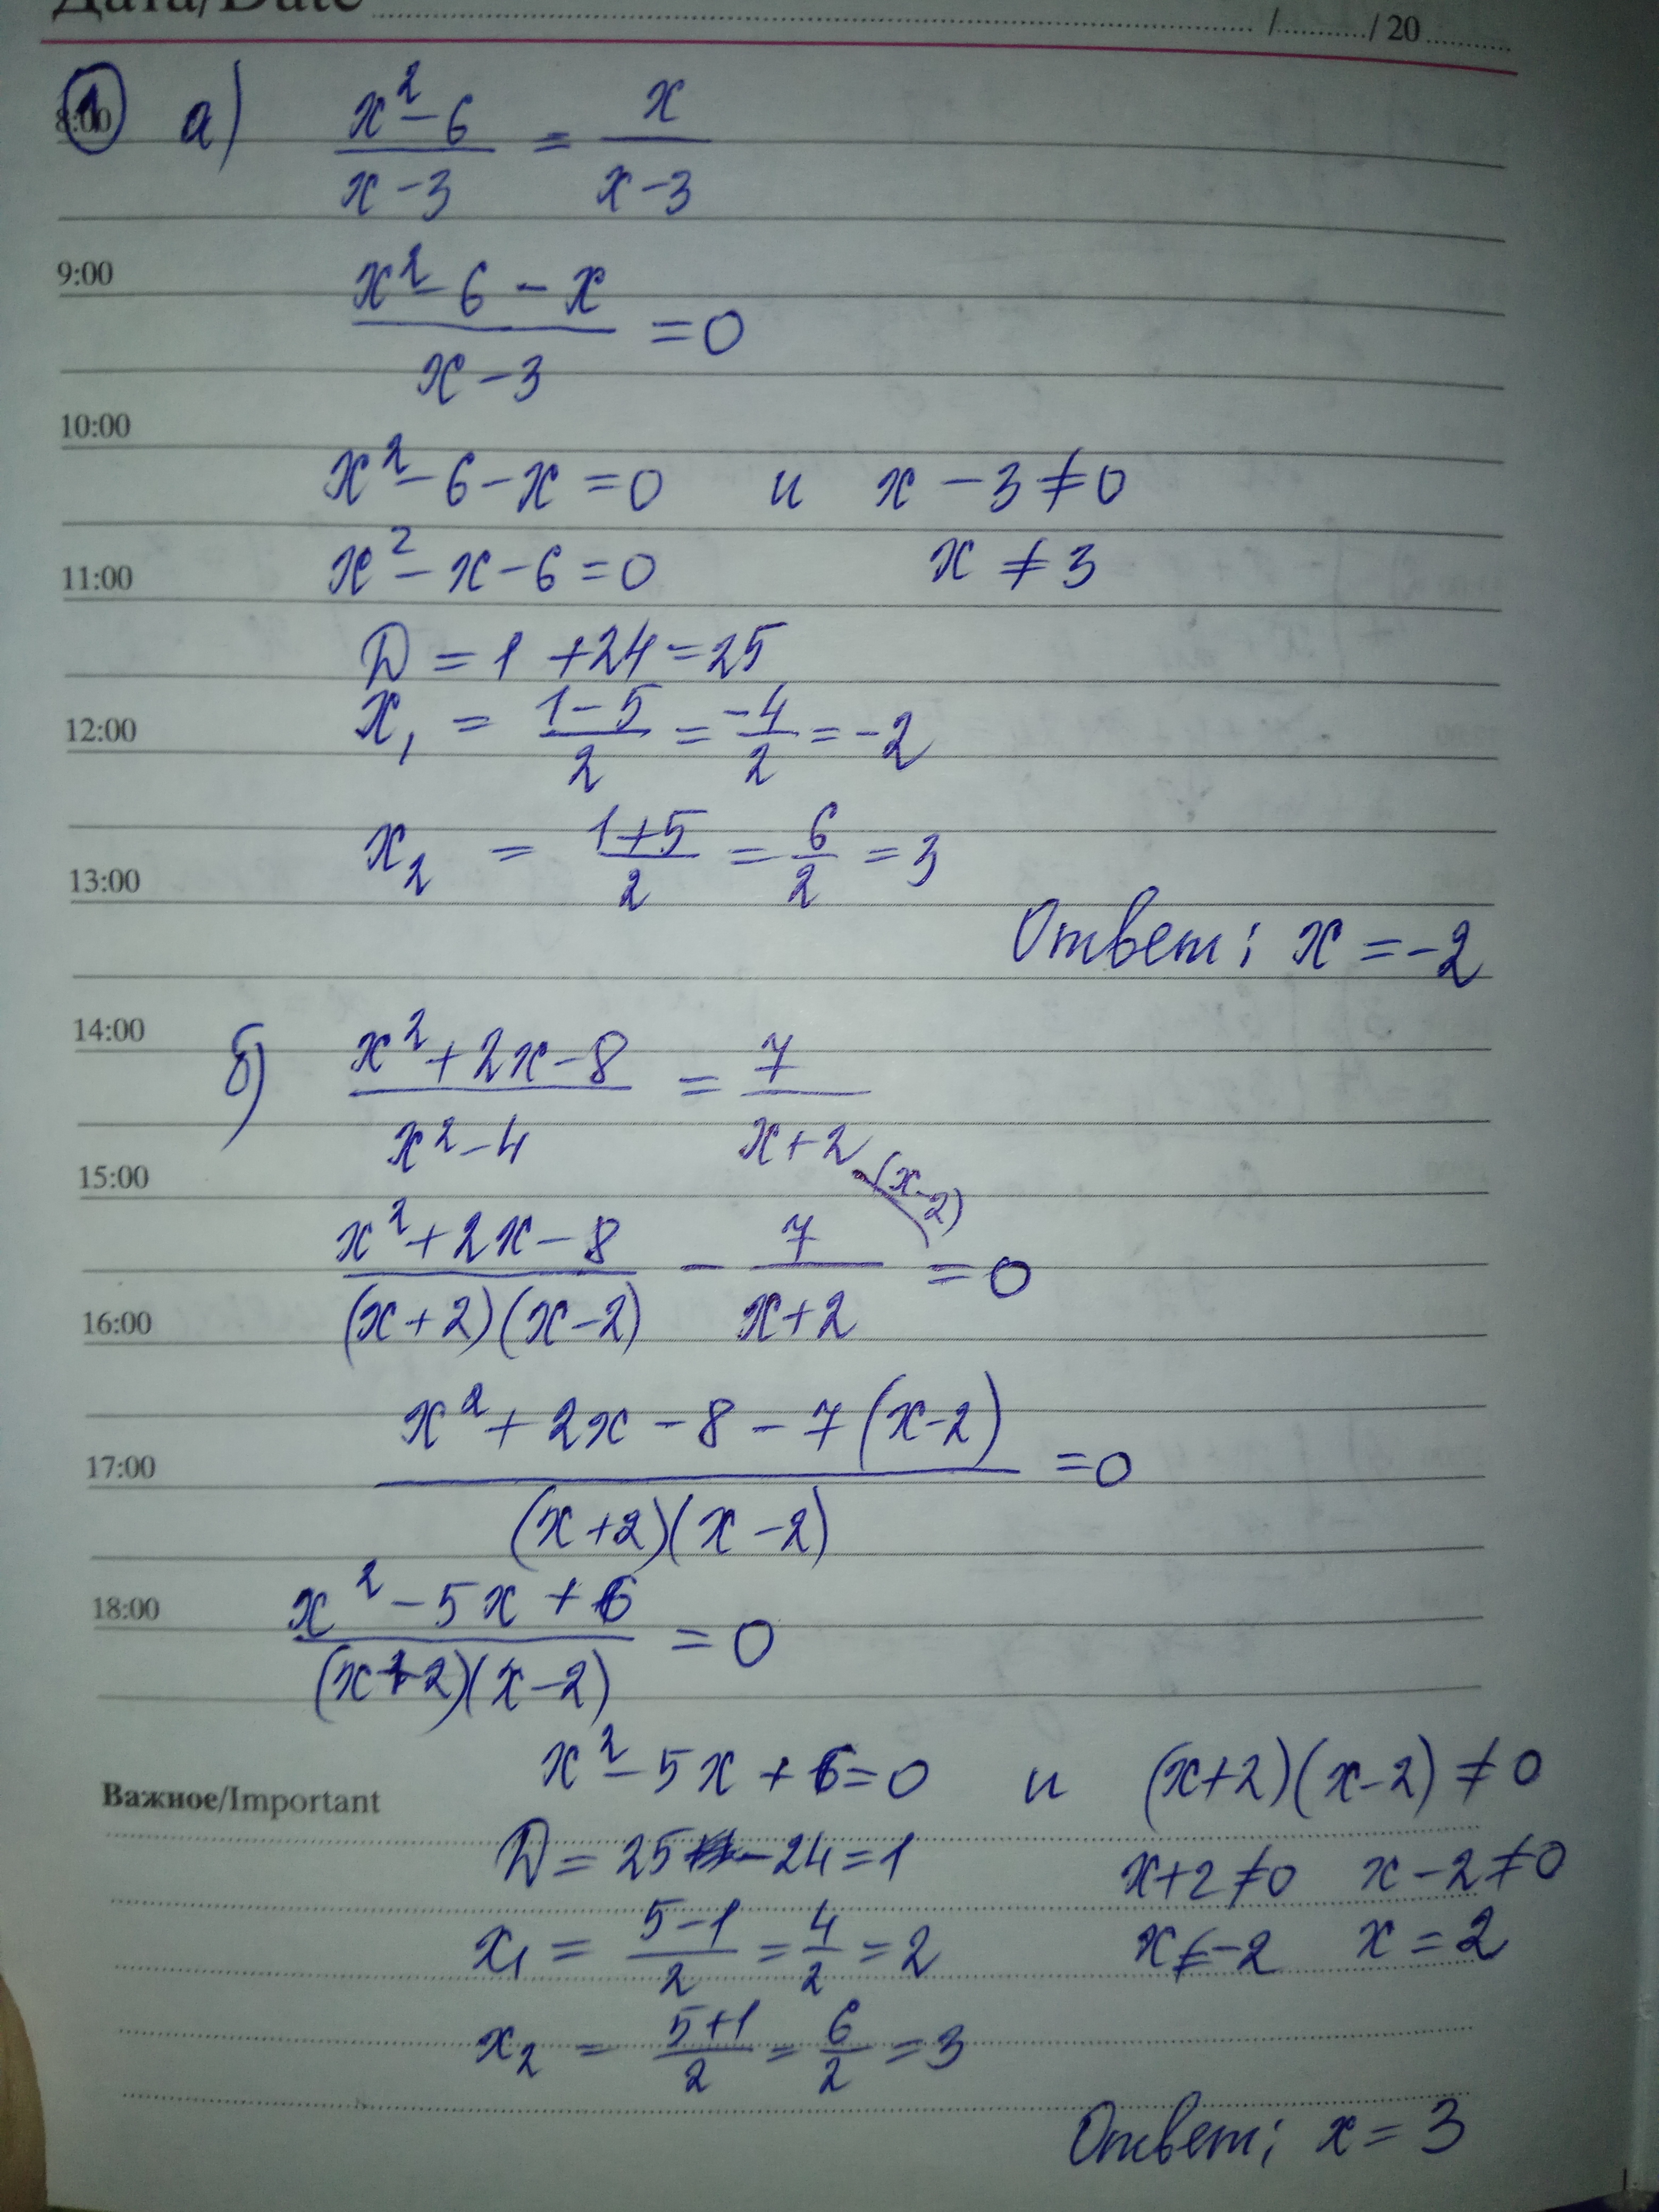 Дата/Date / / 20
8:00
① а) (x² - 6)/(x - 3) = x/(x - 3)
9:00
(x² - 6 - x)/(x - 3) = 0
10:00
x² - 6 - x = 0 и x - 3 ≠ 0
11:00
x² - x - 6 = 0 x ≠ 3
D = 1 + 24 = 25
12:00
x₁ = (1 - 5)/2 = -4/2 = -2
x₂ = (1 + 5)/2 = 6/2 = 3
13:00
Ответ: x = -2
14:00
б) (x² + 2x - 8)/(x² - 4) = 7/(x + 2)
15:00
(x² + 2x - 8)/((x + 2)(x - 2)) - 7/(x + 2) = 0
(x - 2)
16:00
(x² + 2x - 8 - 7(x - 2))/((x + 2)(x - 2)) = 0
17:00
18:00
(x² - 5x + 6)/((x + 2)(x - 2)) = 0
x² - 5x + 6 = 0 и (x + 2)(x - 2) ≠ 0
Важное/Important
D = 25 - 24 = 1 x + 2 ≠ 0 x - 2 ≠ 0
x₁ = (5 - 1)/2 = 4/2 = 2 x ≠ -2 x = 2
x₂ = (5 + 1)/2 = 6/2 = 3
Ответ: x = 3